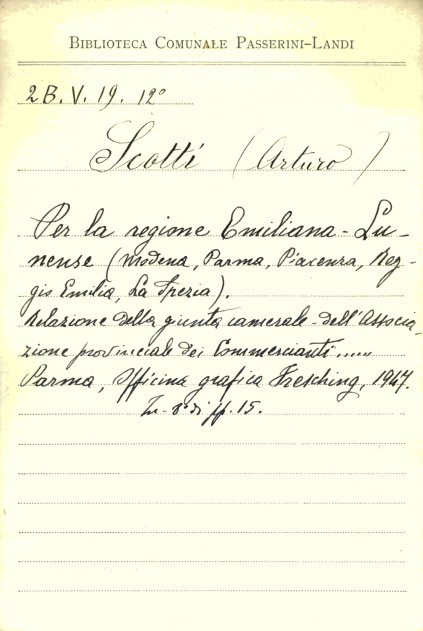 BIBLIOTECA COMUNALE PASSERINI-LANDI
2B.V.19. 12°
Scotti (Arturo)
Per la regione Emiliana-Lu-
nense (Modena, Parma, Piacenza, Reg-
gio Emilia, La Spezia).
Relazione della giunta camerale-dell'Associa-
zione provinciale dei Commercianti.....
Parma, Officina grafica Fresching, 1947.
In-8° di pp. 15.